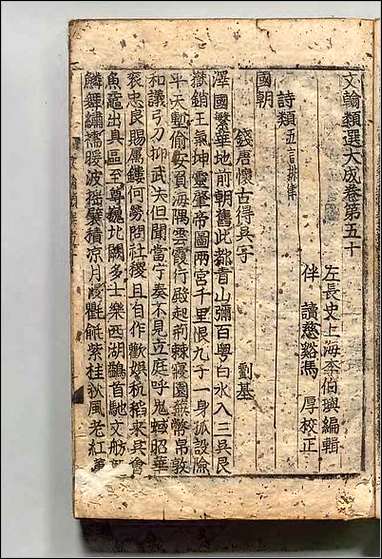 文翰類選大成卷第五十
左長史上海李伯璵編輯
伴讀慈谿馮厚校正
詩類 五言排律
國朝
錢唐懷古得吳字 劉基
澤國繁華地前朝舊此都青山彌百粵白水入三吳艮
嶽銷王氣坤靈肇帝圖兩宮千里恨九子一身孤設險
斗天塹偷安負海隅雲霞行殿起荊棘寢園蕪幣帛敦
和議弓刀抑武夫但聞當宁奏不見立庭呼鬼蜮昭華
袞忠良賜屬鏤何勞問社稷且自作歡娛秔稻來吳會
魚黿出具區至尊巍北闕多士樂西湖鷁首馳文舫龍
鱗舞繡襦暖波搖襞積涼月浸氍毹紫桂秋風老紅蕖